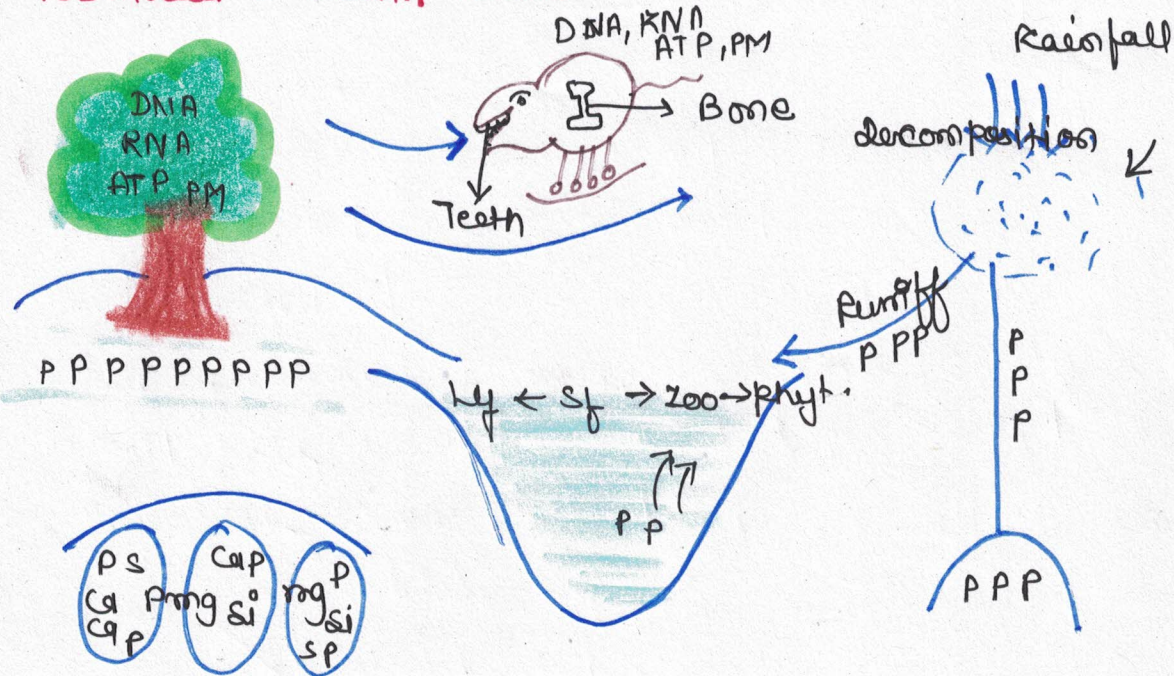 DNA
RNA
ATP PM
DNA, RNA
ATP, PM
Bone
Teeth
Rainfall
decomposition
Runoff
P PP
P
P
P
P P P P P P P P P
sf → Zoo → phyt.
P P
P S
Ca
P
Ca P
Ca P
mg
Si
mg
P
Si
S P
P P P